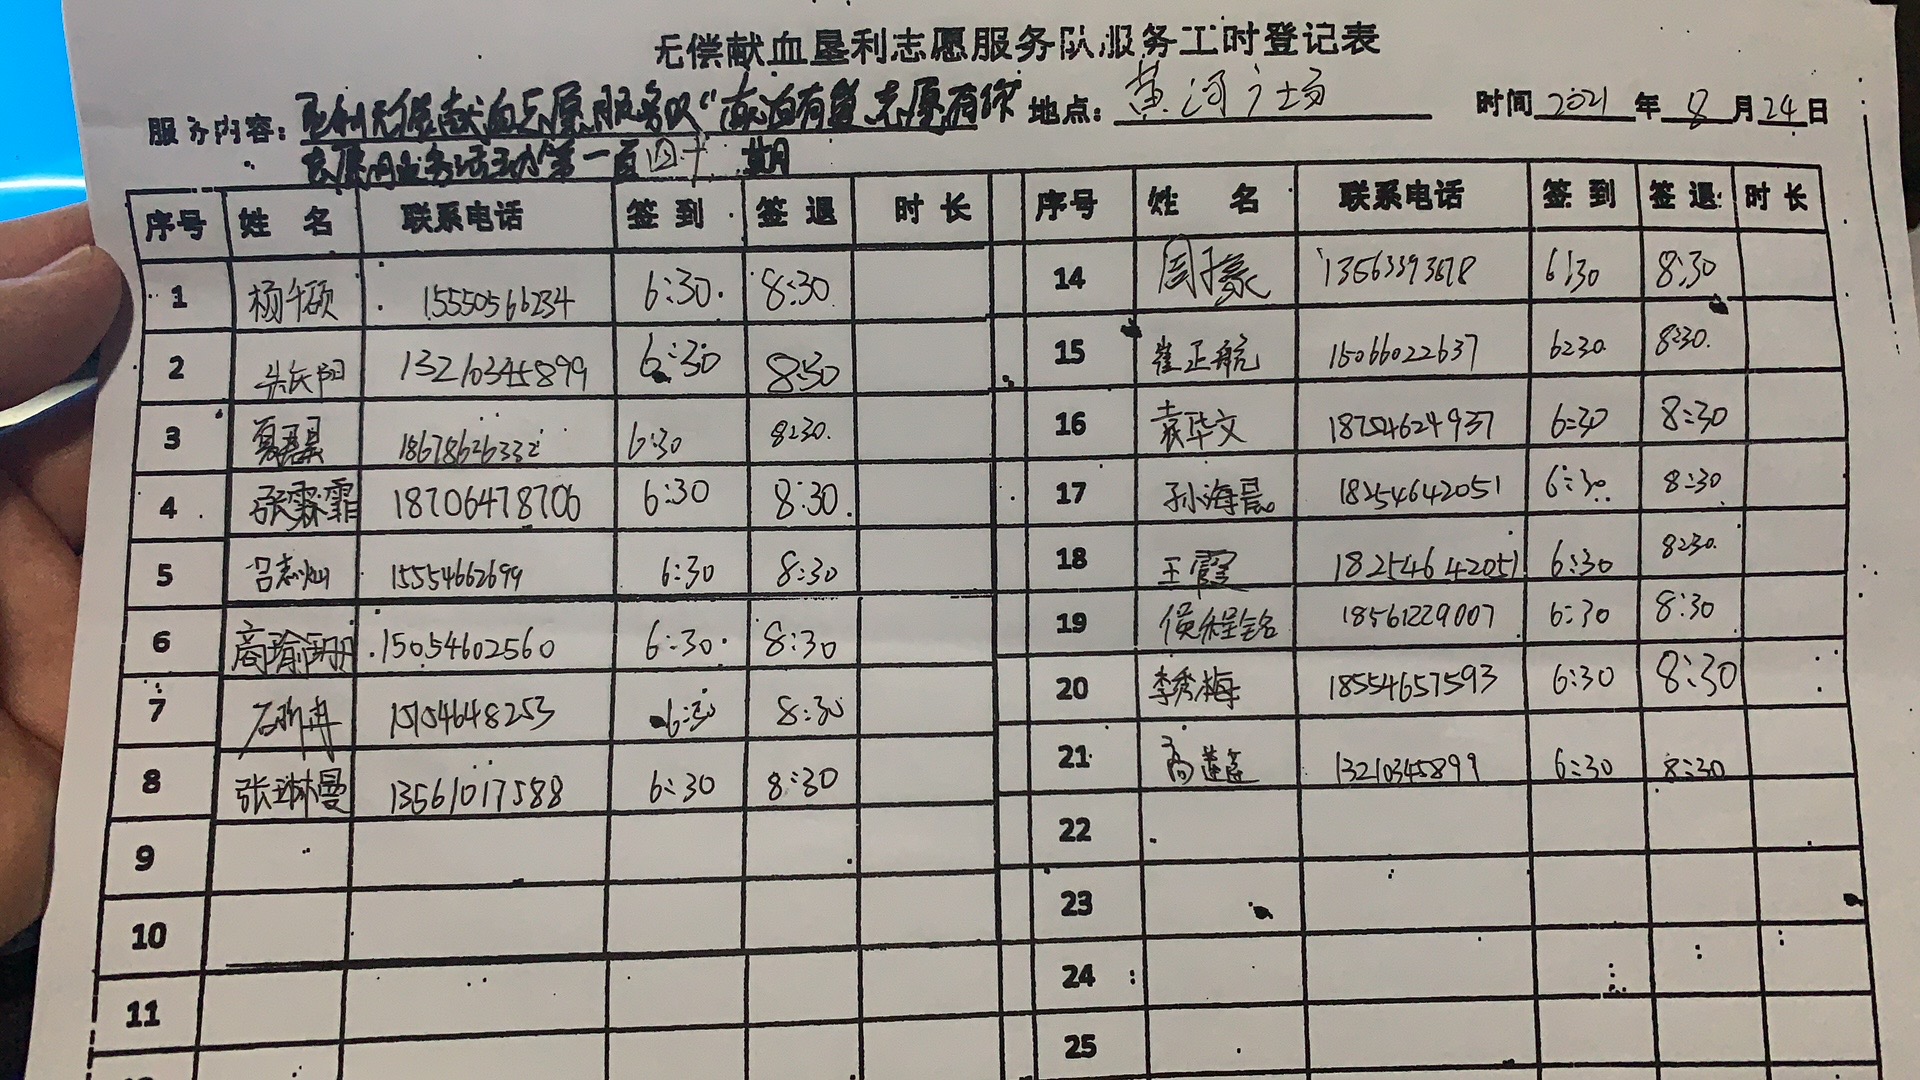 无偿献血垦利志愿服务队服务工时登记表
服务内容：垦利无偿献血志愿服务队“夜泊有我 志愿有你” 地点：黄河广场 时间 2021 年 8 月 24 日
志愿 服务活动第一百四十 期
序号 姓名 联系电话 签到 签退 时长 序号 姓名 联系电话 签到 签退 时长
1 杨千硕 15550566234 6:30 8:30 14 周子豪 13563393678 6:30 8:30
2 13210345899 6:30 8:30 15 崔正航 15066022637 6:30 8:30
3 18678626332 6:30 8:30 16 袁华文 18754624937 6:30 8:30
4 张霖霏 18706478706 6:30 8:30 17 孙海晨 18254642051 6:30 8:30
5 吕志灿 15554662699 6:30 8:30 18 王霞 18254642051 6:30 8:30
6 商瑜珊 15054602560 6:30 8:30 19 侯程铭 18561229007 6:30 8:30
7 15154648253 6:30 8:30 20 李秀梅 18554657593 6:30 8:30
8 张琳曼 13561017588 6:30 8:30 21 高莲莲 13210345899 6:30 8:30
9 22
10 23
11 24
25